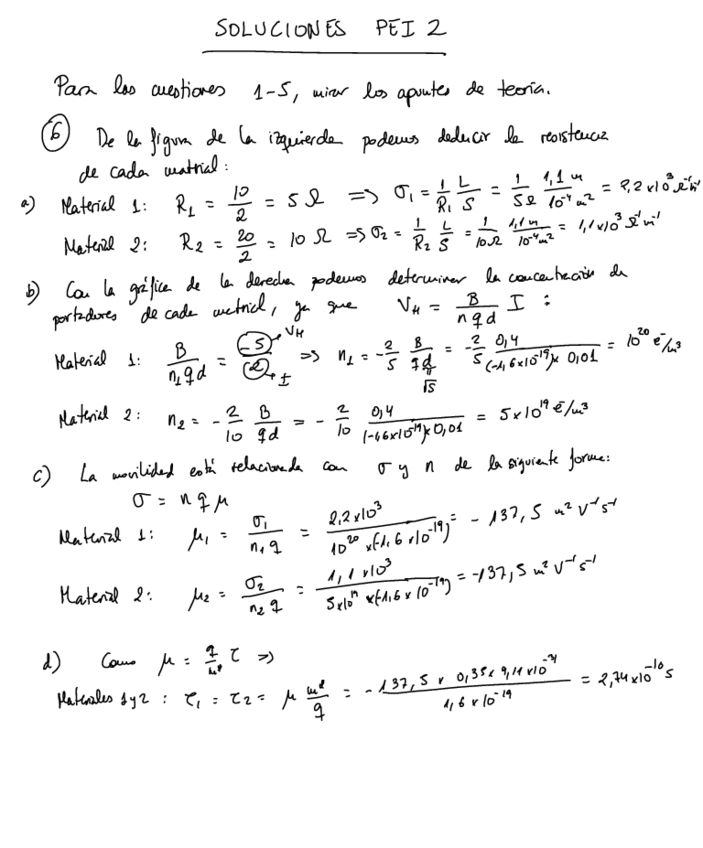 SOLUCIONES PEI 2
Para las cuestiones 1-5, mirar los apuntes de teoría.
6 De la figura de la izquierda podemos deducir la resistencia
de cada material:
a) Material 1: R₁ = 10/2 = 5 Ω => σ₁ = 1/R₁ L/S = 1/5Ω 1,1 m/10⁻⁴ m² = 2,2 x10³ Ω⁻¹m⁻¹
Material 2: R₂ = 20/2 = 10 Ω => σ₂ = 1/R₂ L/S = 1/10Ω 1,1 m/10⁻⁴ m² = 1,1 x10³ Ω⁻¹m⁻¹
b) Con la gráfica de la derecha podemos determinar la concentración de
portadores de cada material, ya que V_H = B/nqd I :
Material 1: B/n₁qd = -5/2 V_H I => n₁ = -2/5 B/qd = -2/5 0,4/(-1,6x10⁻¹⁹)x 0,01 = 10²⁰ e⁻/m³
Material 2: n₂ = -2/10 B/qd = -2/10 0,4/(-1,6x10⁻¹⁹)x0,01 = 5x10¹⁹ e⁻/m³
c) La movilidad está relacionada con σ y n de la siguiente forma:
σ = n q μ
Material 1: μ₁ = σ₁/n₁q = 2,2x10³/10²⁰ x(-1,6 x10⁻¹⁹) = - 137,5 m² V⁻¹s⁻¹
Material 2: μ₂ = σ₂/n₂q = 1,1 x10³/5x10¹⁹ x(-1,6x10⁻¹⁹) = -137,5 m² V⁻¹s⁻¹
d) Como μ = q/m* τ =>
Materiales 1y2 : τ₁ = τ₂ = μ m*/q = - 137,5 x 0,35x 9,11 x10⁻³¹/1,6 x10⁻¹⁹ = 2,74x10⁻¹⁰ s